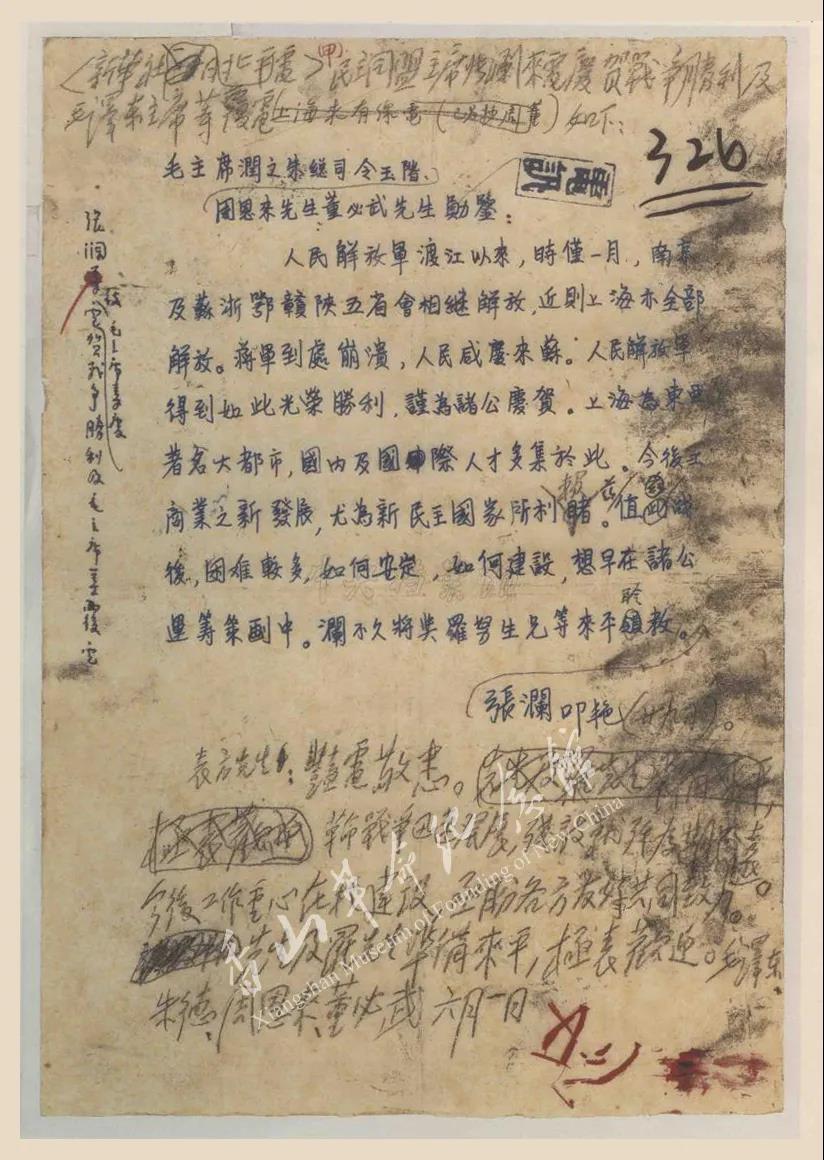 (甲)
〈新華社 北平電〉民主同盟主席張瀾來電慶賀戰爭勝利及
毛澤東主席等覆電 如下：
電訊
326
毛主席潤之朱總司令玉階、
周恩來先生董必武先生勛鑒：
人民解放軍渡江以來，時僅一月，南京
及蘇浙鄂贛陝五省會相繼解放，近則上海亦全部
解放。蔣軍到處崩潰，人民咸慶來蘇。人民解放軍
得到如此光榮勝利，謹為諸公慶賀。上海為東西
著名大都市，國內及國際人才多集於此。今後工
商業之新發展，尤為新民主國家所利賴。值茲戰
後，困難較多，如何安定，如何建設，想早在諸公
運籌策劃中。瀾不久將與羅努生兄等來平聆教。
張瀾叩艳(廿九日)。
表方先生：艷電敬悉。
極表歡迎
革命戰爭迅速發展，殘敵就殲為期不遠。
今後工作重心在於建設，亟盼各方友好共同致力。
先生及羅先生準備來平，極表歡迎。毛澤東、
朱德、周恩來、董必武 六月一日
張瀾電賀戰爭勝利及毛主席等覆電
致毛主席
香山革命紀念館
Xiangshan Museum of Founding of New China